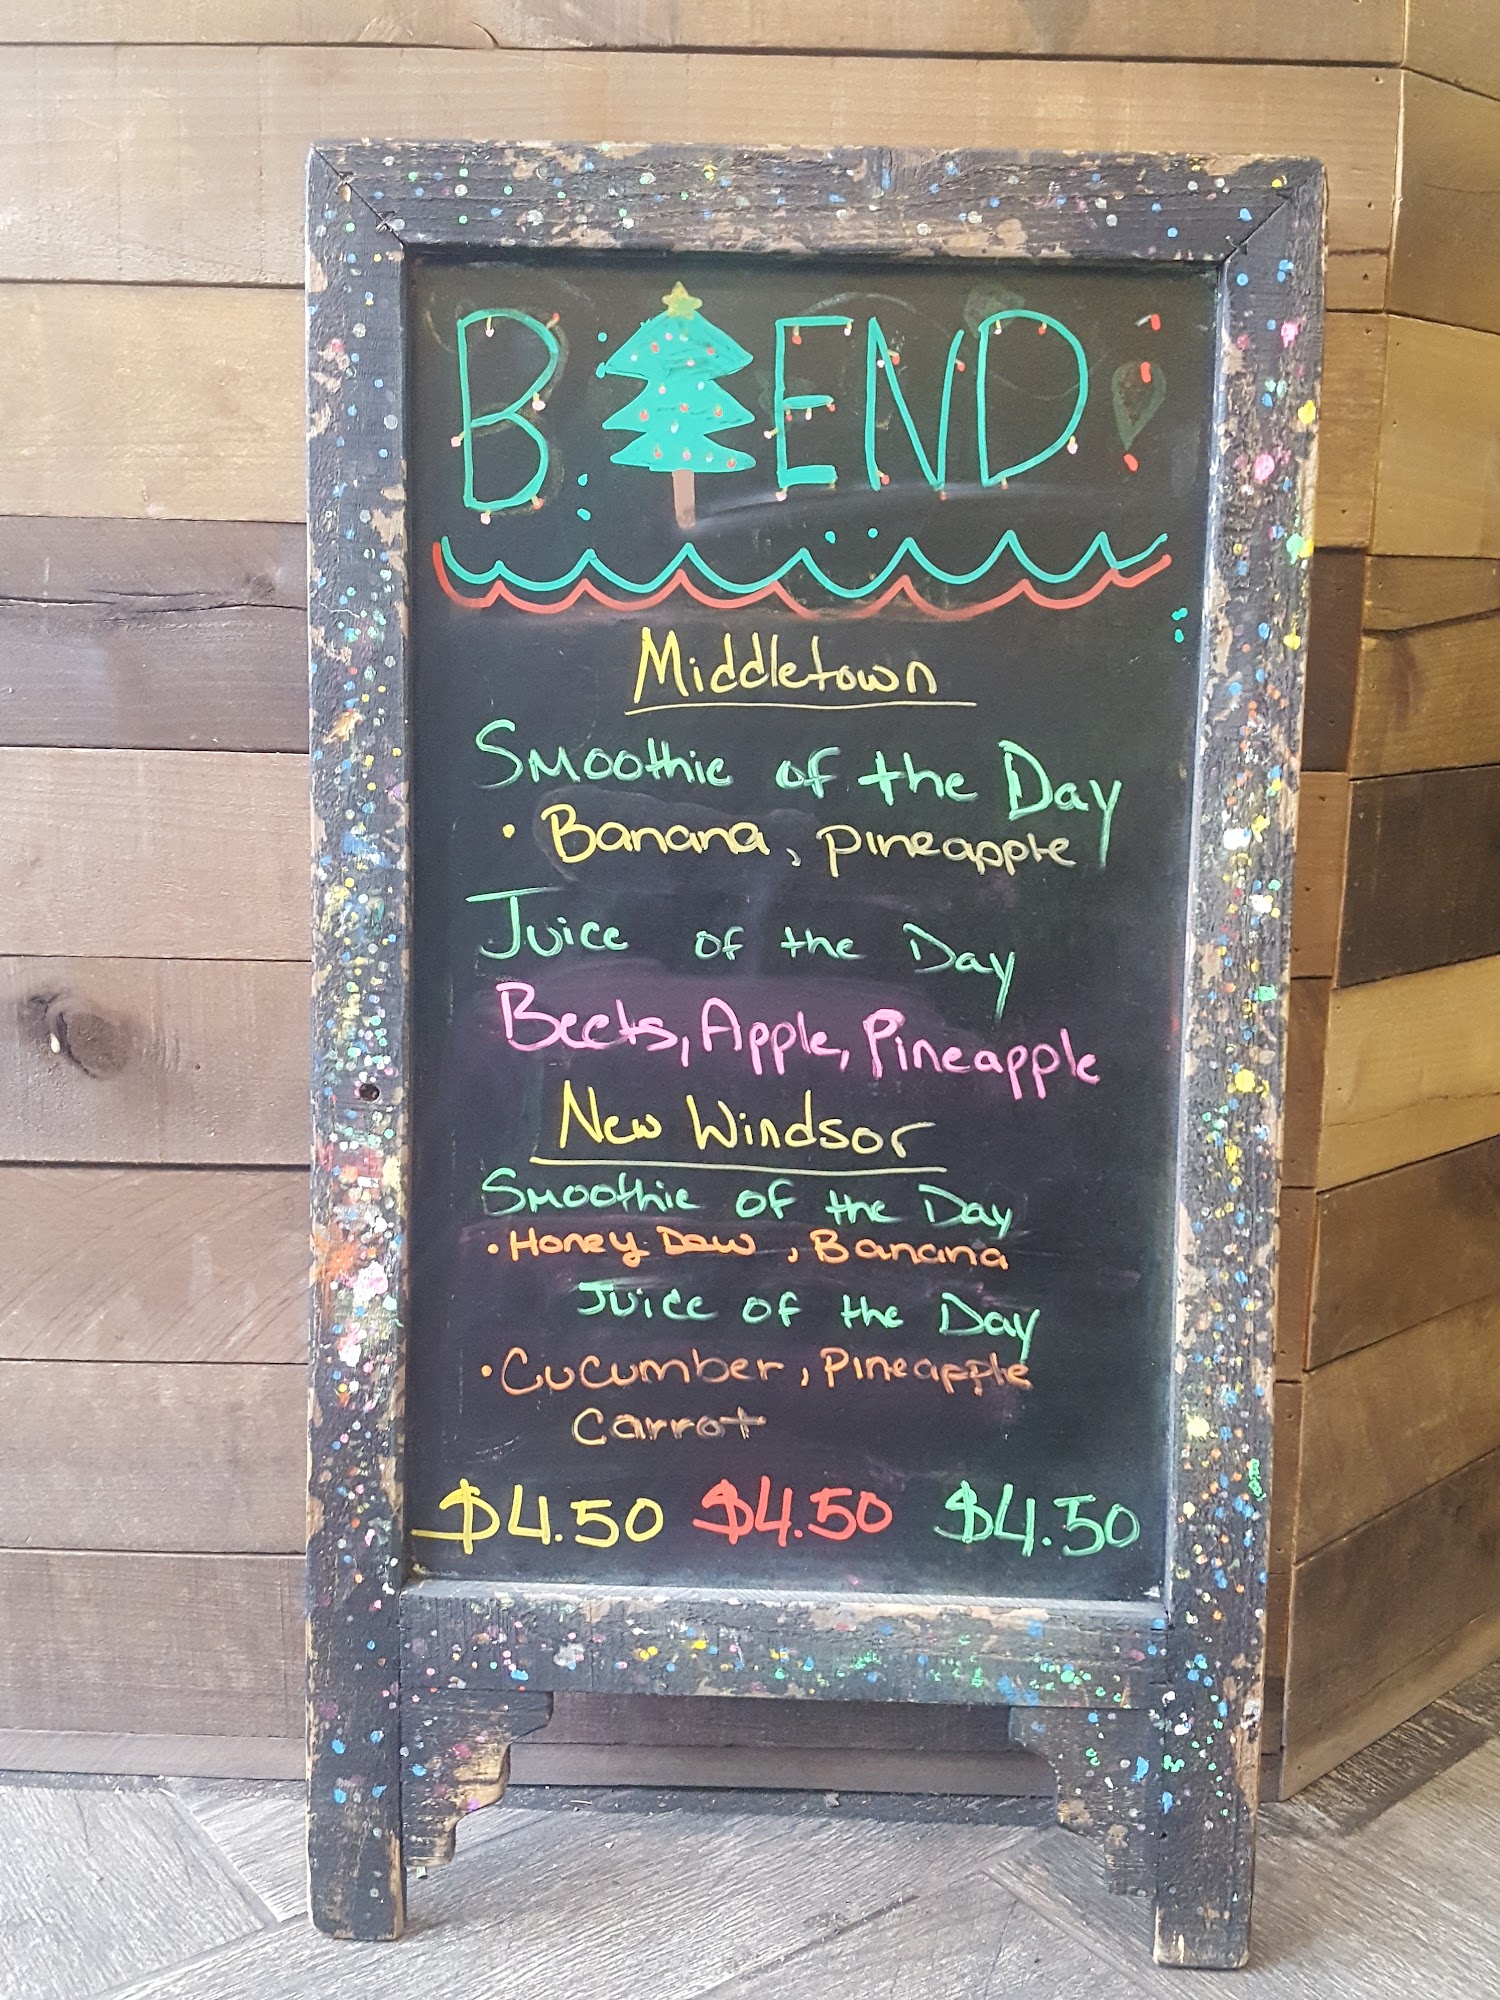 BLEND
Middletown
Smoothie of the Day
• Banana, pineapple
Juice of the Day
Beets, Apple, Pineapple
New Windsor
Smoothie of the Day
• Honey Dew, Banana
Juice of the Day
• Cucumber, Pineapple
Carrot
$4.50 $4.50 $4.50